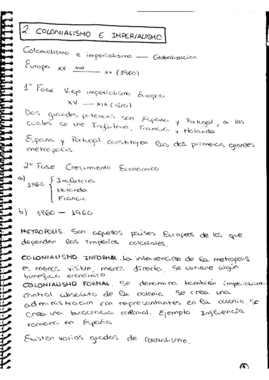 2. COLONIALISMO E IMPERIALISMO
Colonialismo e imperialismo — Globalización
Europa XV XVIII XX (1960)
1º Fase Viejo imperialismo
XV — XIX
Dos grandes potencias son España y Portugal, a las
cuales se une Inglaterra, Francia y Holanda
España y Portugal construyen las dos primeras grandes
metropolis.
2º Fase Crecimiento Economico
a) Inglaterra
Holanda
Francia
b) 1960
METROPOLIS. Son aquellos países Europeos de los que
dependen los imperios coloniales.
COLONIALISMO INFORMAL. La intervención de la metropolis
es menos visible, menos directa. Se obtiene algún
beneficio económico
COLONIALISMO FORMAL. Se denomina también imperialismo
control absoluto de la colonia. Se crea una
administración con representantes en la colonia se
crea una burocracia colonial. Ejemplo Influencia
romana en España
Existen varios grados de colonialismo.